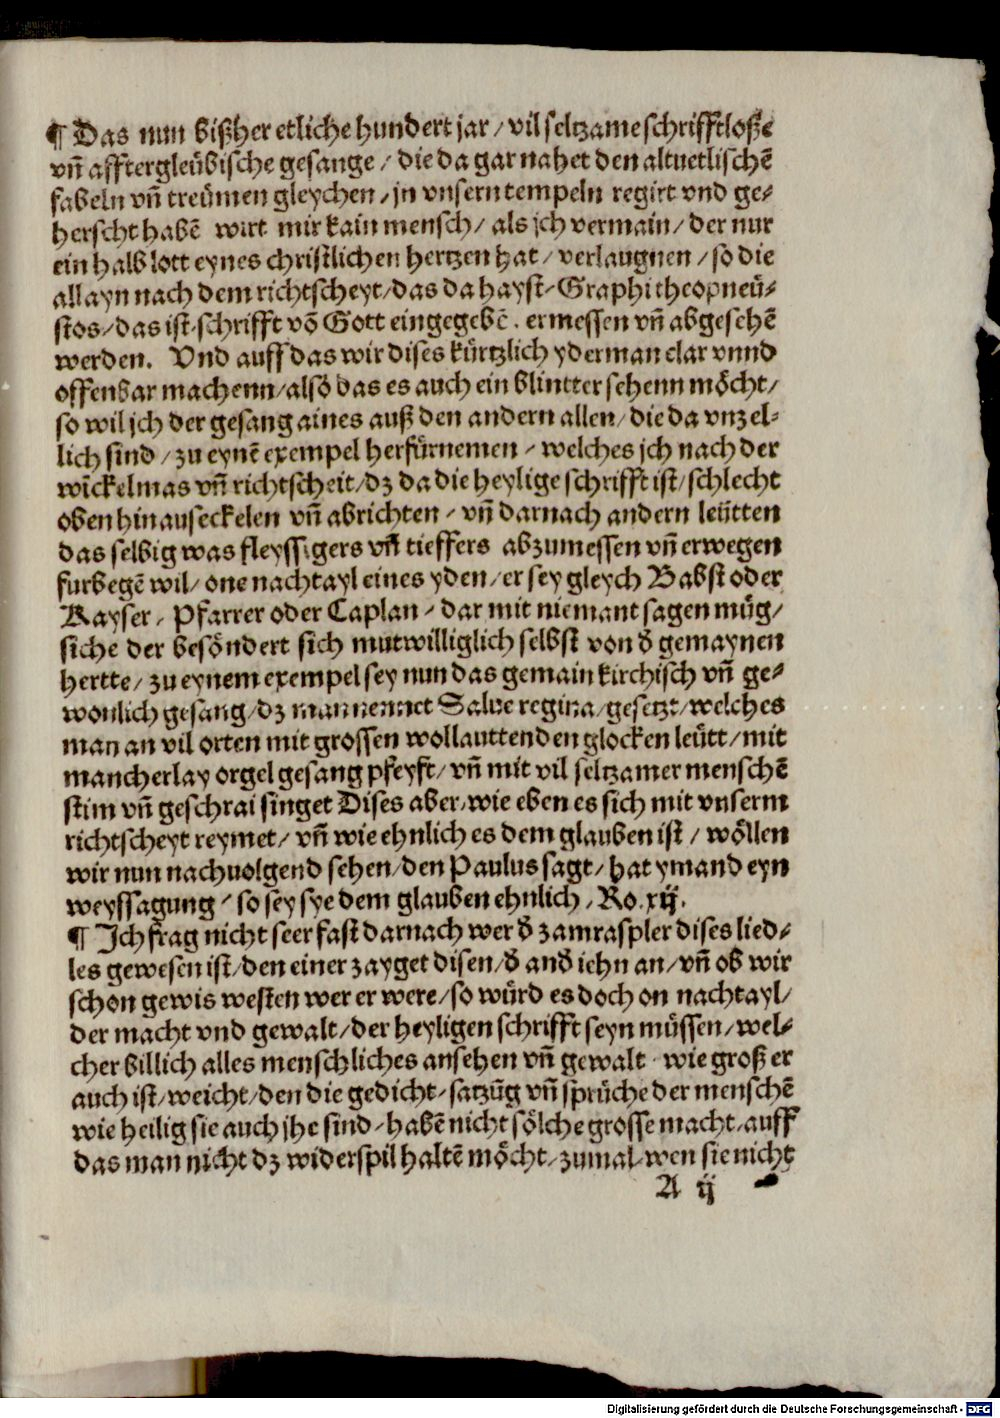 ¶ Das nun bißher etliche hundert jar / vil seltzame schrifftloße
vn̄ afftergleübische gesange / die da gar nahet den altuetlischē
fabeln vn̄ treümen gleychen / jn vnsern tempeln regirt vnd ge-
herscht habē wirt mir kain mensch / als jch vermain / der nur
ein halb lott eynes christlichen hertzen hat / verlaugnen / so die
allayn nach dem richtscheyt / das da hayst / Graphi theopneü-
stos / das ist / schrifft vō Gott eingegebē . ermessen vn̄ abgesehē
werden. Vnd auff das wir dises kürtzlich yderman clar vnnd
offenbar machenn / also das es auch ein blintter sehenn möcht /
so wil jch der gesang aines auß den andern allen / die da vnzel-
lich sind / zu eynē exempel herfürnemen / welches jch nach der
winckelmas vn̄ richtscheit / dz da die heylige schrifft ist / schlecht
oben hin auseckelen vn̄ abrichten / vn̄ darnach andern leütten
das selbig was fleyssigers vn̄ tieffers abzumessen vn̄ erwegen
furbegē wil / one nachtayl eines yden / er sey gleych Babst oder
Kayser / Pfarrer oder Caplan / dar mit niemant sagen müg /
siche der besöndert sich mutwilliglich selbst von d̕ gemaynen
hertte / zu eynem exempel sey nun das gemain kirchisch vn̄ ge-
wonlich gesang / dz man nennet Salue regina / gesetzt / welches
man an vil orten mit grossen wollauttenden glocken leütt / mit
mancherlay orgel gesang pfeyft / vn̄ mit vil seltzamer menschē
stim vn̄ geschrai singet Dises aber / wie eben es sich mit vnserm
richtscheyt reymet / vn̄ wie ehnlich es dem glauben ist / wöllen
wir nun nachuolgend sehen / den Paulus sagt / hat ymand eyn
weyssagung / so sey sye dem glauben ehnlich / Ro. xij.
¶ Ich frag nicht seer fast darnach wer d̕ zamraspler dises lied-
les gewesen ist / den einer zayget disen / d̕ and̕ iehn an / vn̄ ob wir
schon gewis westen wer er were / so würd es doch on nachtayl /
der macht vnd gewalt / der heyligen schrifft seyn müssen / wel-
cher billich alles menschliches ansehen vn̄ gewalt / wie groß er
auch ist / weicht / den die gedicht / satzūg vn̄ sprüche der menschē
wie heilig sie auch jhe sind / habē nicht sölche grosse macht / auff
das man nicht dz widerspil haltē möcht / zumal / wen sie nicht
A ij
Digitalisierung gefördert durch die Deutsche Forschungsgemeinschaft - DFG